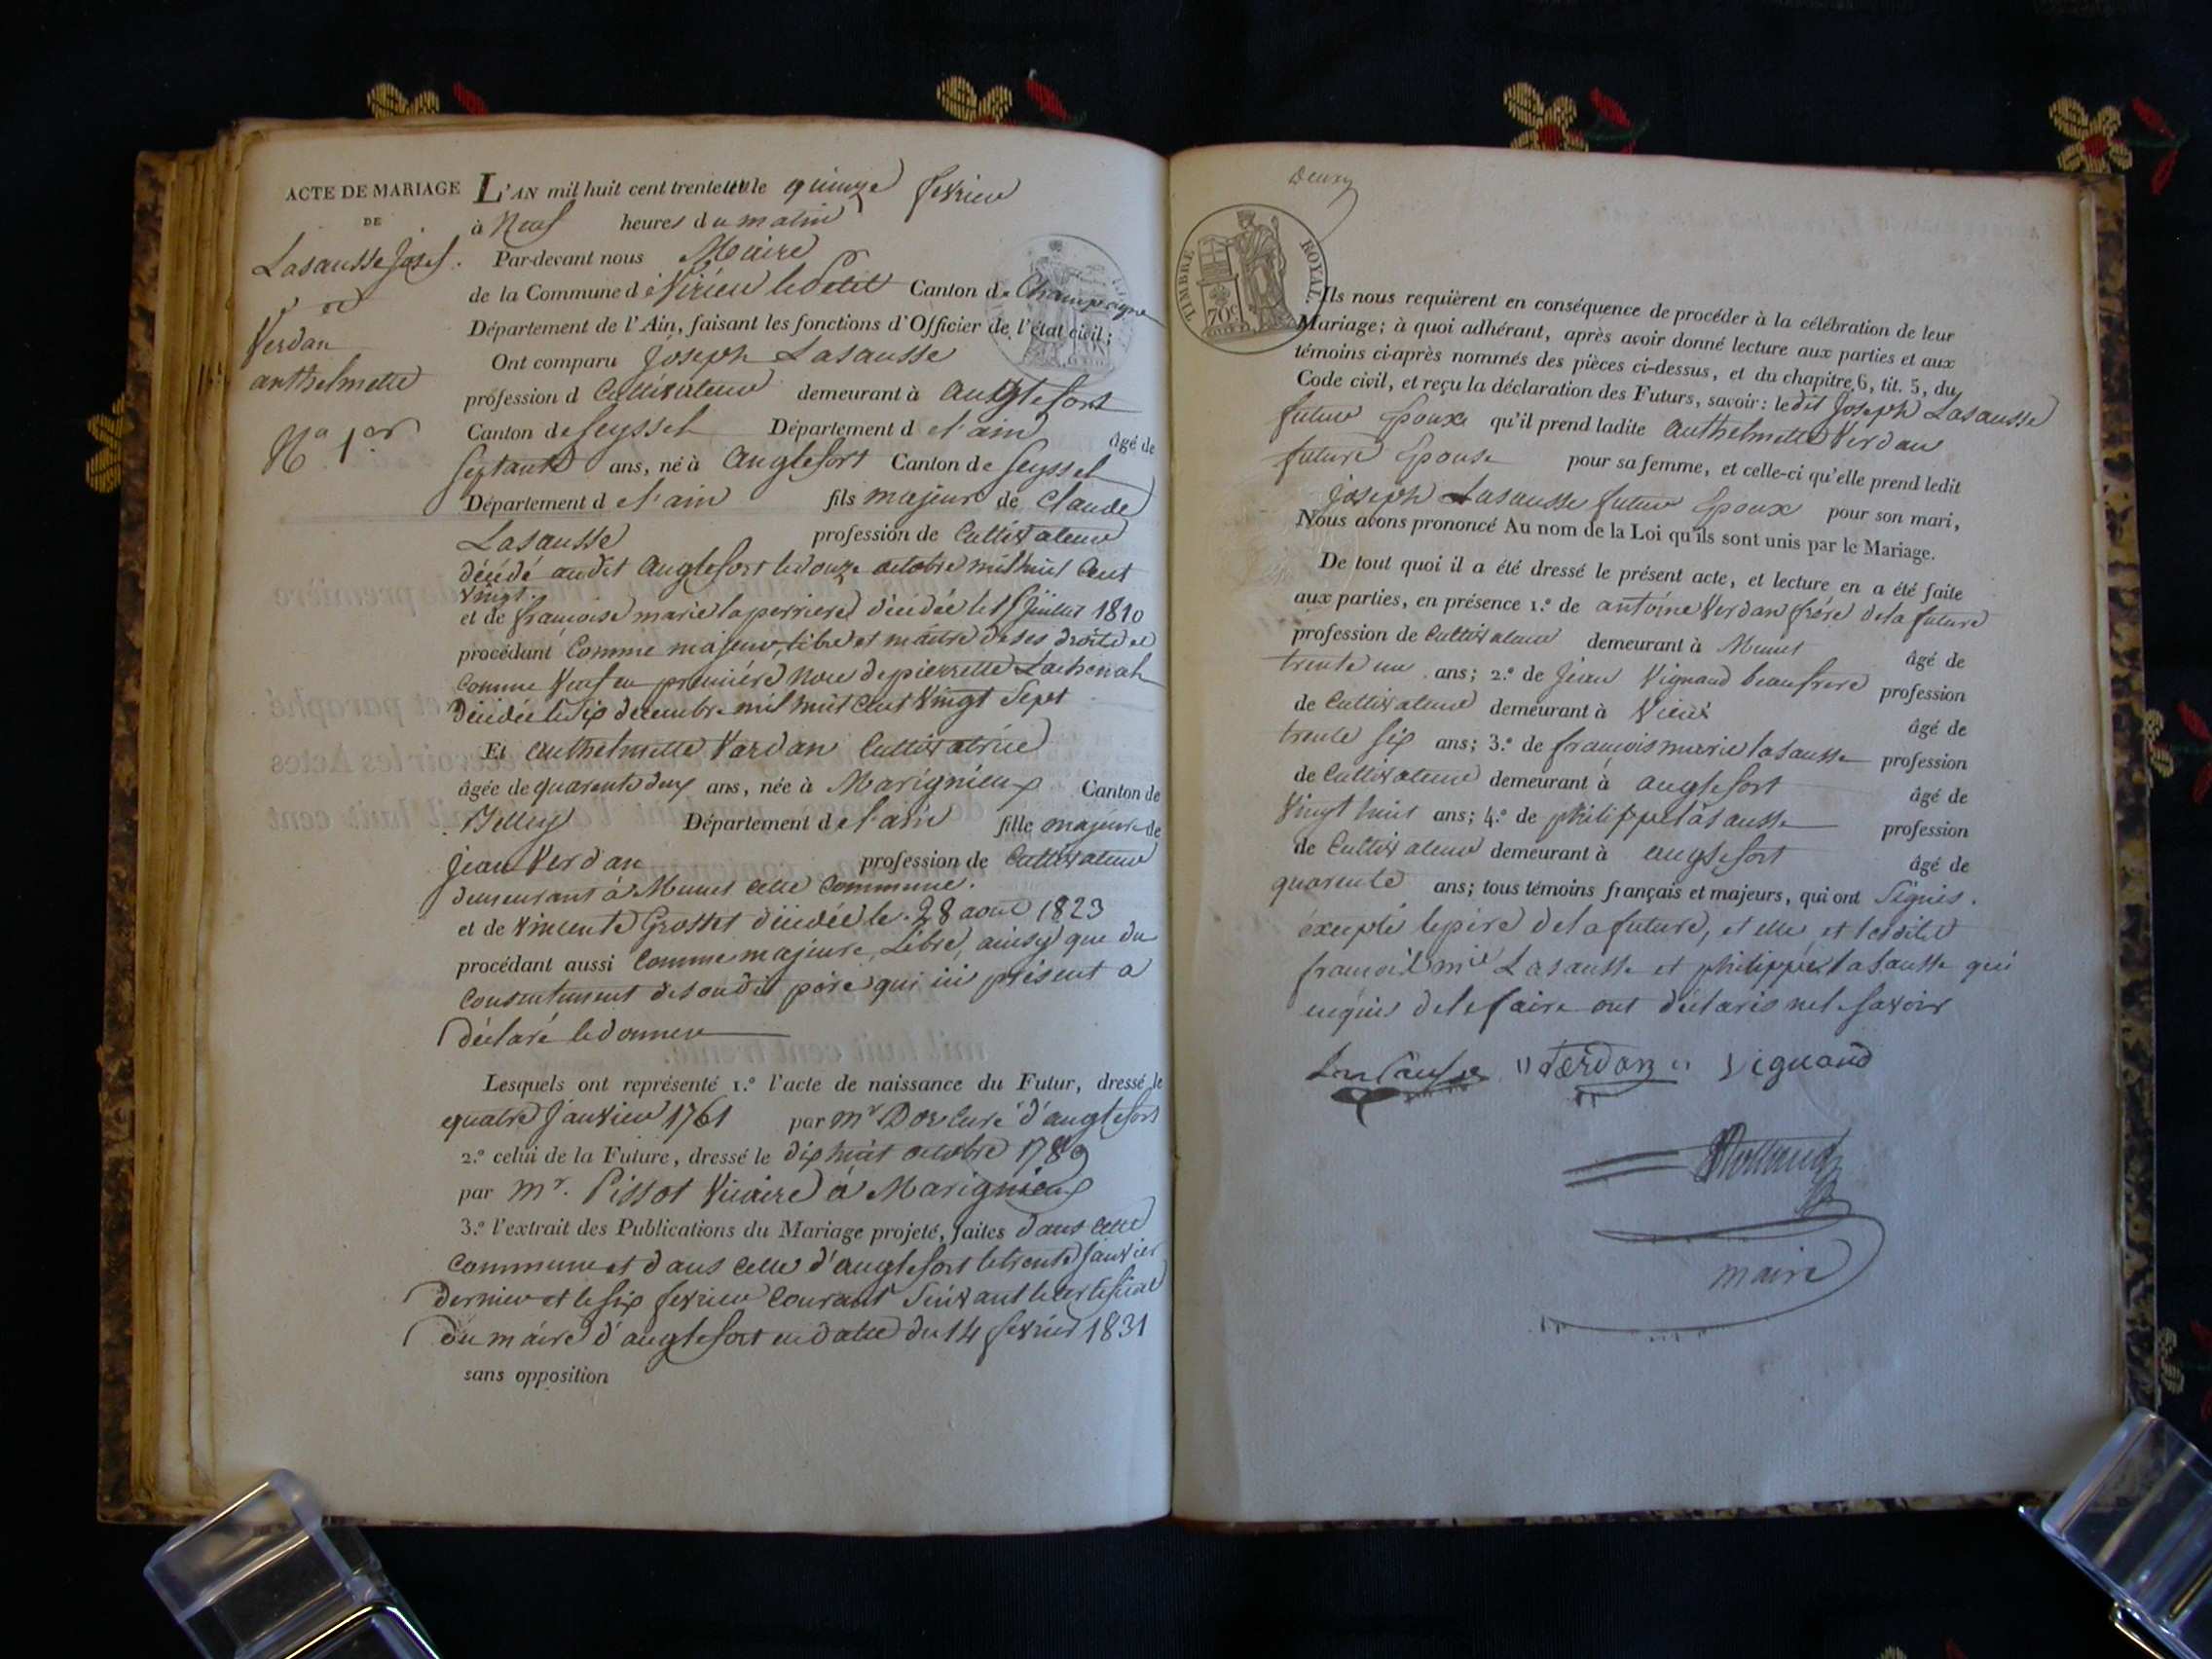 ACTE DE MARIAGE
DE
Lasausse Josef.
et
Verdan
anthelmette
No 1er
L'AN mil huit cent trente un le quinze fevrier
à Neuf heures du matin
Par-devant nous Maire
de la Commune de Virieu le Petit Canton de Champagne
Département de l'Ain, faisant les fonctions d'Officier de l'état civil;
Ont comparu Joseph Lasausse
profession de Cultivateur demeurant à anglefort
Canton de Seyssel Département de l'ain âgé de
Septante ans, né à anglefort Canton de Seyssel
Département de l'ain fils majeur de Claude
Lasausse profession de Cultivateur
décédé audit anglefort le douze octobre mil huit Cent
Vingt.
et de françoise marie laperriere décédée le 15 juillet 1810
procédant Comme majeur, libre et maître de ses droits et
Comme Veuf en première Noce de pierrette Lachenal
décédée le six decembre mil huit Cent Vingt Sept
Et anthelmette Verdan Cultivatrice
âgée de quarente deux ans, née à Marignieux Canton de
Belley Département de l'ain fille majeure de
jean Verdan profession de Cultivateur
demeurant à Munet cette Commune.
et de Vincente Grosset décédée le 28 aout 1823
procédant aussi Comme majeure, Libre, ainsy que du
Consentement de son dit père qui ici présent a
déclaré le donner
Lesquels ont représenté 1.º l'acte de naissance du Futur, dressé le
quatre Janvier 1761 par mr Dor Curé d'anglefort
2.º celui de la Future, dressé le dix huit octobre 1789
par mr. Pissot Vicaire à Marignieux
3.º l'extrait des Publications du Mariage projeté, faites dans cette
Commune et dans Celle d'anglefort le trente Janvier
dernier et le six fevrier Courant Suivant le certificat
du maire d'anglefort en datte du 14 fevrier 1831
sans opposition
Deux
TIMBRE ROYAL.
70c
Ils nous requièrent en conséquence de procéder à la célébration de leur
Mariage; à quoi adhérant, après avoir donné lecture aux parties et aux
témoins ci-après nommés des pièces ci-dessus, et du chapitre 6, tit. 5, du
Code civil, et reçu la déclaration des Futurs, savoir: le dit Joseph Lasausse
futur Epoux qu'il prend ladite anthelmette Verdan
future Epouse pour sa femme, et celle-ci qu'elle prend ledit
Joseph Lasausse futur Epoux pour son mari,
Nous avons prononcé Au nom de la Loi qu'ils sont unis par le Mariage.
De tout quoi il a été dressé le présent acte, et lecture en a été faite
aux parties, en présence 1.º de antoine Verdan frére de la future
profession de Cultivateur demeurant à Munet âgé de
trente un ans; 2.º de Jean Vignand beaufrere profession
de Cultivateur demeurant à Vieux âgé de
trente six ans; 3.º de françois marie lasausse profession
de Cultivateur demeurant à anglefort âgé de
Vingt huit ans; 4.º de philippe lasausse profession
de Cultivateur demeurant à anglefort âgé de
quarente ans; tous témoins français et majeurs, qui ont Signés.
excepté le pére de la future, et elle, et lesdits
françois mie Lasausse et philippe lasausse qui
enquis de le faire ont déclarés ne le savoir
La Sausse Verdan Vignand
maire